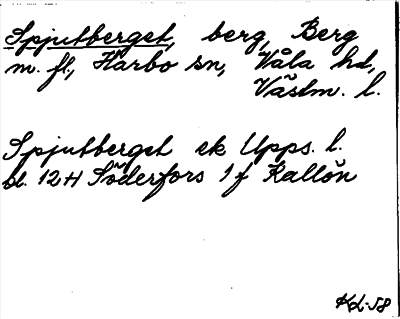 Spjutberget, berg, Berg
m. fl., Harbo sn, Våla hd,
Västm. l.
Spjutberget ek Upps. l.
bl. 12H Söderfors 1f Kallön
KL-58